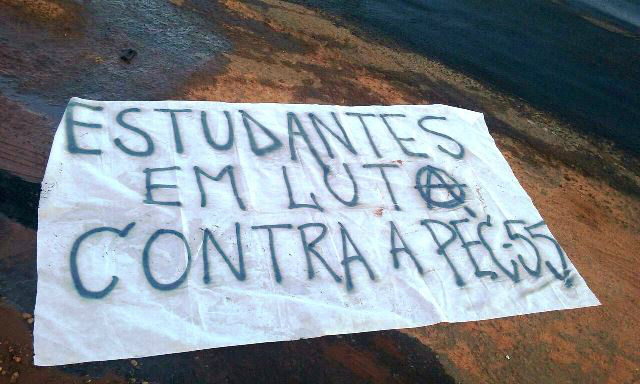 ESTUDANTES
EM LUTA
CONTRA A PEC-55!